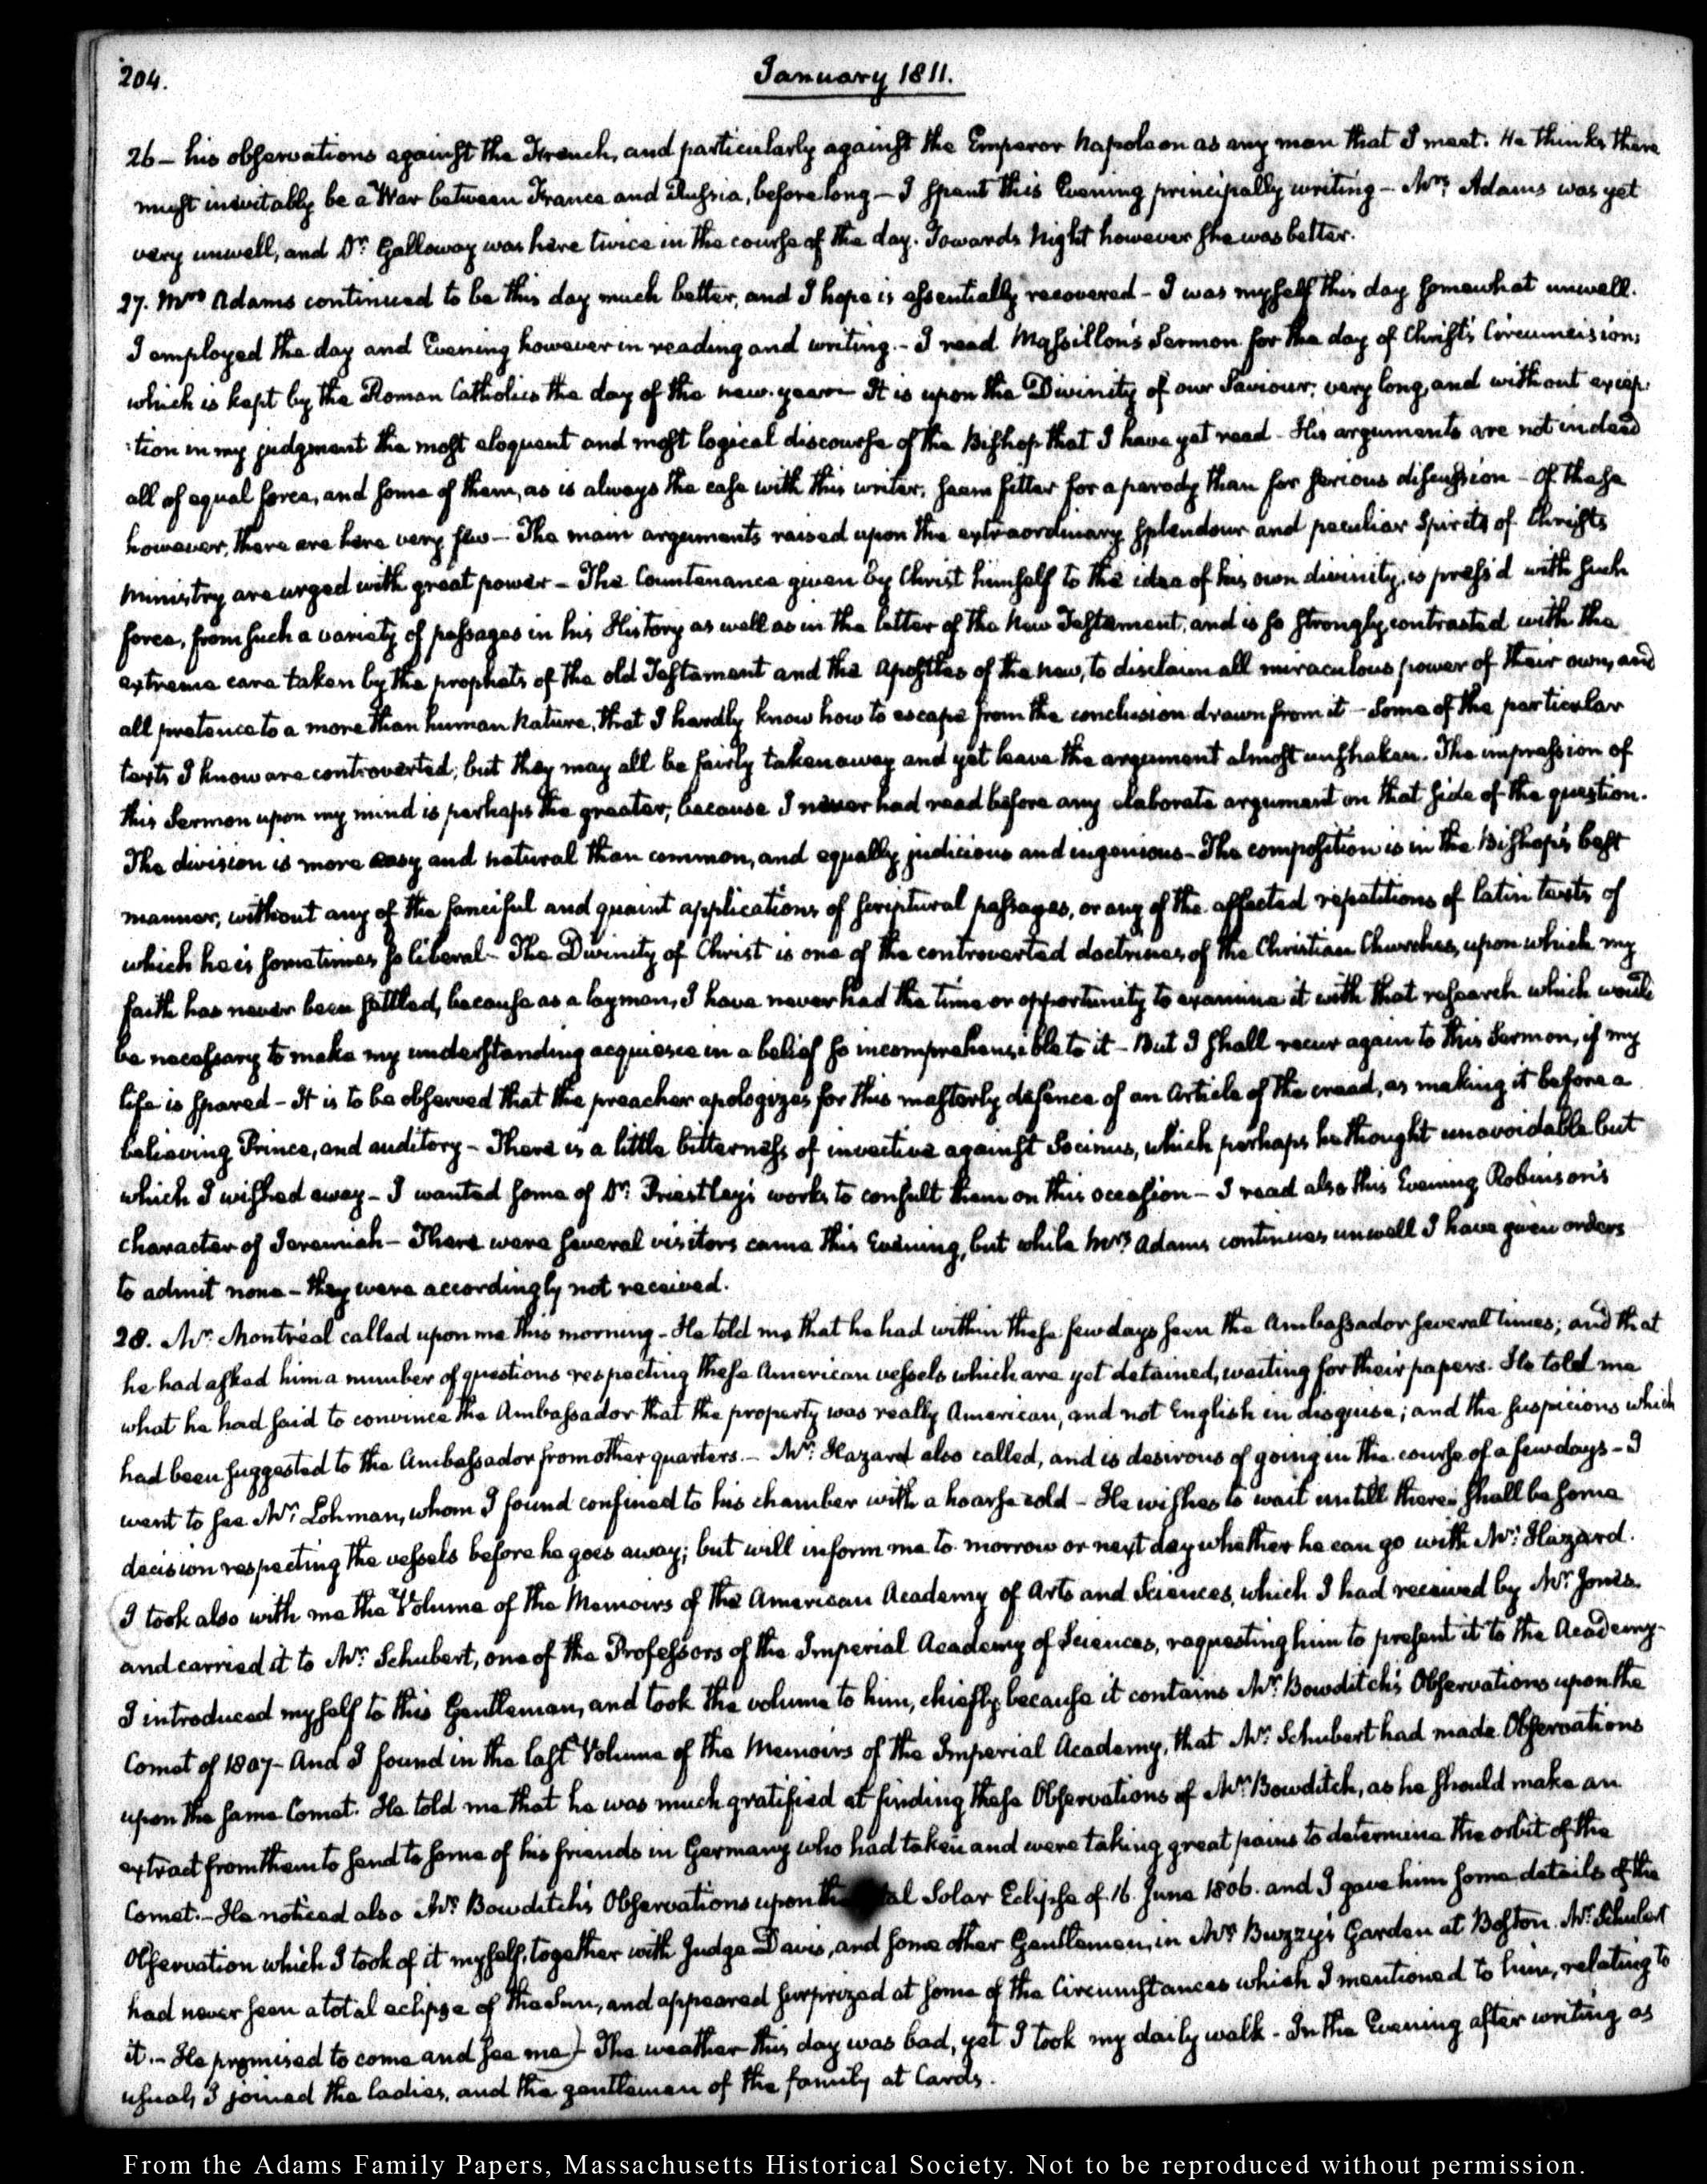 204.
January 1811.
26 – his observations against the French, and particularly against the Emperor Napoleon as any man that I meet. He thinks there
must inevitably be a War between France and Russia, before long – I spent this Evening principally writing – Mrs. Adams was yet
very unwell, and Dr. Galloway was here twice in the course of the day. Towards Night however she was better.
27. Mrs Adams continued to be this day much better, and I hope is essentially recovered – I was myself this day somewhat unwell.
I employed the day and Evening however in reading and writing. – I read Massillon's Sermon for the day of Christ's Circumcision;
which is kept by the Roman Catholics the day of the new-year – It is upon the Divinity of our Saviour; very long, and without excep-
:tion in my judgment the most eloquent and most logical discourse of the Bishop that I have yet read – His arguments are not indeed
all of equal force, and some of them, as is always the case with this writer, seem fitter for a parody than for serious discussion – Of these
however, there are here very few – The main arguments raised upon the extraordinary splendour and peculiar Spirit of Christ's
Ministry are urged with great power – The Countenance given by Christ himself to the idea of his own divinity, is press'd with such
force, from such a variety of passages in his History as well as in the letter of the New Testament, and is so strongly contrasted with the
extreme care taken by the prophets of the old Testament and the Apostles of the new, to disclaim all miraculous power of their own, and
all pretence to a more than human Nature, that I hardly know how to escape from the conclusion drawn from it – Some of the particular
texts I know are controverted; but they may all be fairly taken away and yet leave the argument almost unshaken. The impression of
this Sermon upon my mind is perhaps the greater, because I never had read before any elaborate argument on that side of the question.
The division is more easy and natural than common, and equally judicious and ingenious – The composition is in the Bishop's best
manner, without any of the fanciful and quaint applications of scriptural passages, or any of the affected repetitions of latin texts of
which he is sometimes so liberal – The Divinity of Christ is one of the controverted doctrines of the Christian Churches, upon which my
faith has never been settled, because as a layman, I have never had the time or opportunity to examine it with that research which would
be necessary to make my understanding acquiesce in a belief so incomprehensible to it – But I shall recur again to this Sermon, if my
life is spared – It is to be observed that the preacher apologizes for this masterly defence of an Article of the creed, as making it before a
believing Prince, and auditory – There is a little bitterness of invective against Socinus, which perhaps he thought unavoidable but
which I wished away – I wanted some of Dr. Priestley's works to consult them on this occasion – I read also this Evening Robinson's
character of Jeremiah – There were several visitors came this Evening, but while Mrs. Adams continues unwell I have given orders
to admit none – they were accordingly not received.
28. Mr. Montréal called upon me this morning – He told me that he had within these few days seen the Ambassador several times; and that
he had asked him a number of questions respecting these American vessels which are yet detained, waiting for their papers. He told me
what he had said to convince the Ambassador that the property was really American, and not English in disguise; and the suspicions which
had been suggested to the Ambassador from other quarters. – Mr. Hazard also called, and is desirous of going in the course of a few days – I
went to see Mr. Lohman, whom I found confined to his chamber with a hoarse cold – He wishes to wait untill there shall be some
decision respecting the vessels before he goes away; but will inform me to-morrow or next day whether he can go with Mr. Hazard.
(I took also with me the Volume of the Memoirs of the American Academy of Arts and Sciences, which I had received by Mr. Jones.
and carried it to Mr. Schubert, one of the Professors of the Imperial Academy of Sciences, requesting him to present it to the Academy –
I introduced myself to this Gentleman, and took the volume to him, chiefly because it contains Mr. Bowditch's Observations upon the
Comet of 1807 – And I found in the last Volume of the Memoirs of the Imperial Academy, that Mr. Schubert had made Observations
upon the same Comet. He told me that he was much gratified at finding these Observations of Mr. Bowditch, as he should make an
extract from them to send to some of his friends in Germany who had taken and were taking great pains to determine the orbit of the
Comet. – He noticed also Mr. Bowditch's Observations upon the Solar Eclipse of 16. June 1806. and I gave him some details of the
Observation which I took of it myself, together with Judge Davis, and some other Gentlemen, in Mr. Bussey's Garden at Boston. Mr. Schubert
had never seen a total eclipse of the Sun, and appeared surprized at some of the Circumstances which I mentioned to him, relating to
it. – He promised to come and see me) – The weather this day was bad, yet I took my daily walk – In the Evening after writing as
usual, I joined the ladies, and the gentlemen of the family at Cards.
From the Adams Family Papers, Massachusetts Historical Society. Not to be reproduced without permission.